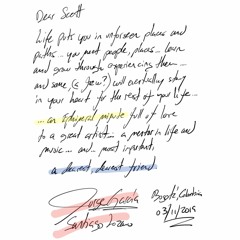 Dear Scott
Life puts you in unforseen places and
paths... you meet people, places... learn
and grow through experiencing them...
and some (a few?) will eventually stay
in your heart for the rest of your life...
... an ephimeral minute full of love
to a great artist... a mentor in life and
music... and... most important,
a dearest, dearest friend.
Jorge García
Santiago Lozano
Bogotá, Colombia
03/11/2015